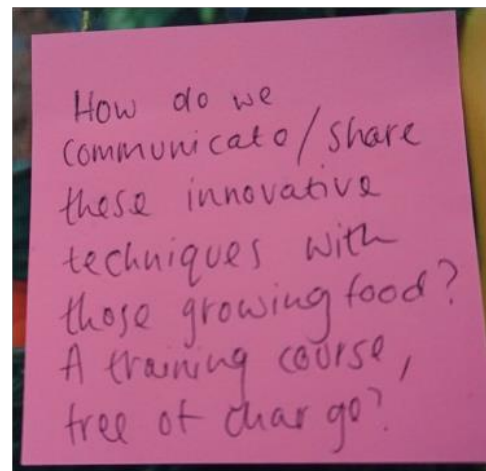 How do we
communicate/share
these innovative
techniques with
those growing food?
A training course,
free of charge?